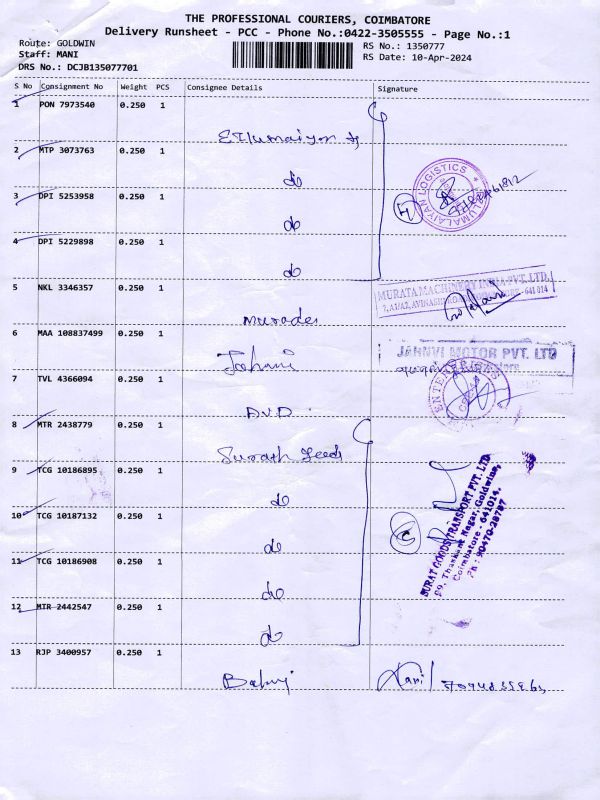 THE PROFESSIONAL COURIERS, COIMBATORE
Delivery Runsheet - PCC - Phone No.:0422-3505555 - Page No.:1
Route: GOLDWIN
Staff: MANI
DRS No.: DCJB135077701
RS No.: 1350777
RS Date: 10-Apr-2024
S No Consignment No Weight PCS Consignee Details Signature
1 PON 7973540 0.250 1
2 MTP 3073763 0.250 1
do
3 DPI 5253958 0.250 1
do
4 DPI 5229898 0.250 1
do
ELUMALAIYAN LOGISTICS
5 NKL 3346357 0.250 1
MURATA MACHINERY INDIA PVT. LTD.
641 014
6 MAA 108837499 0.250 1
JAHNVI MOTOR PVT. LTD
7 TVL 4366094 0.250 1
A.V.D.
ENTERPRISES
8 MTR 2438779 0.250 1
Surath feeds
9 TCG 10186895 0.250 1
do
10 TCG 10187132 0.250 1
do
11 TCG 10186908 0.250 1
do
12 MTR 2442547 0.250 1
do
SURAT GOODS TRANSPORT PVT. LTD
Thaskant Nagar, Goldwins,
Coimbatore - 641014.
Ph: 90470-28787
13 RJP 3400957 0.250 1